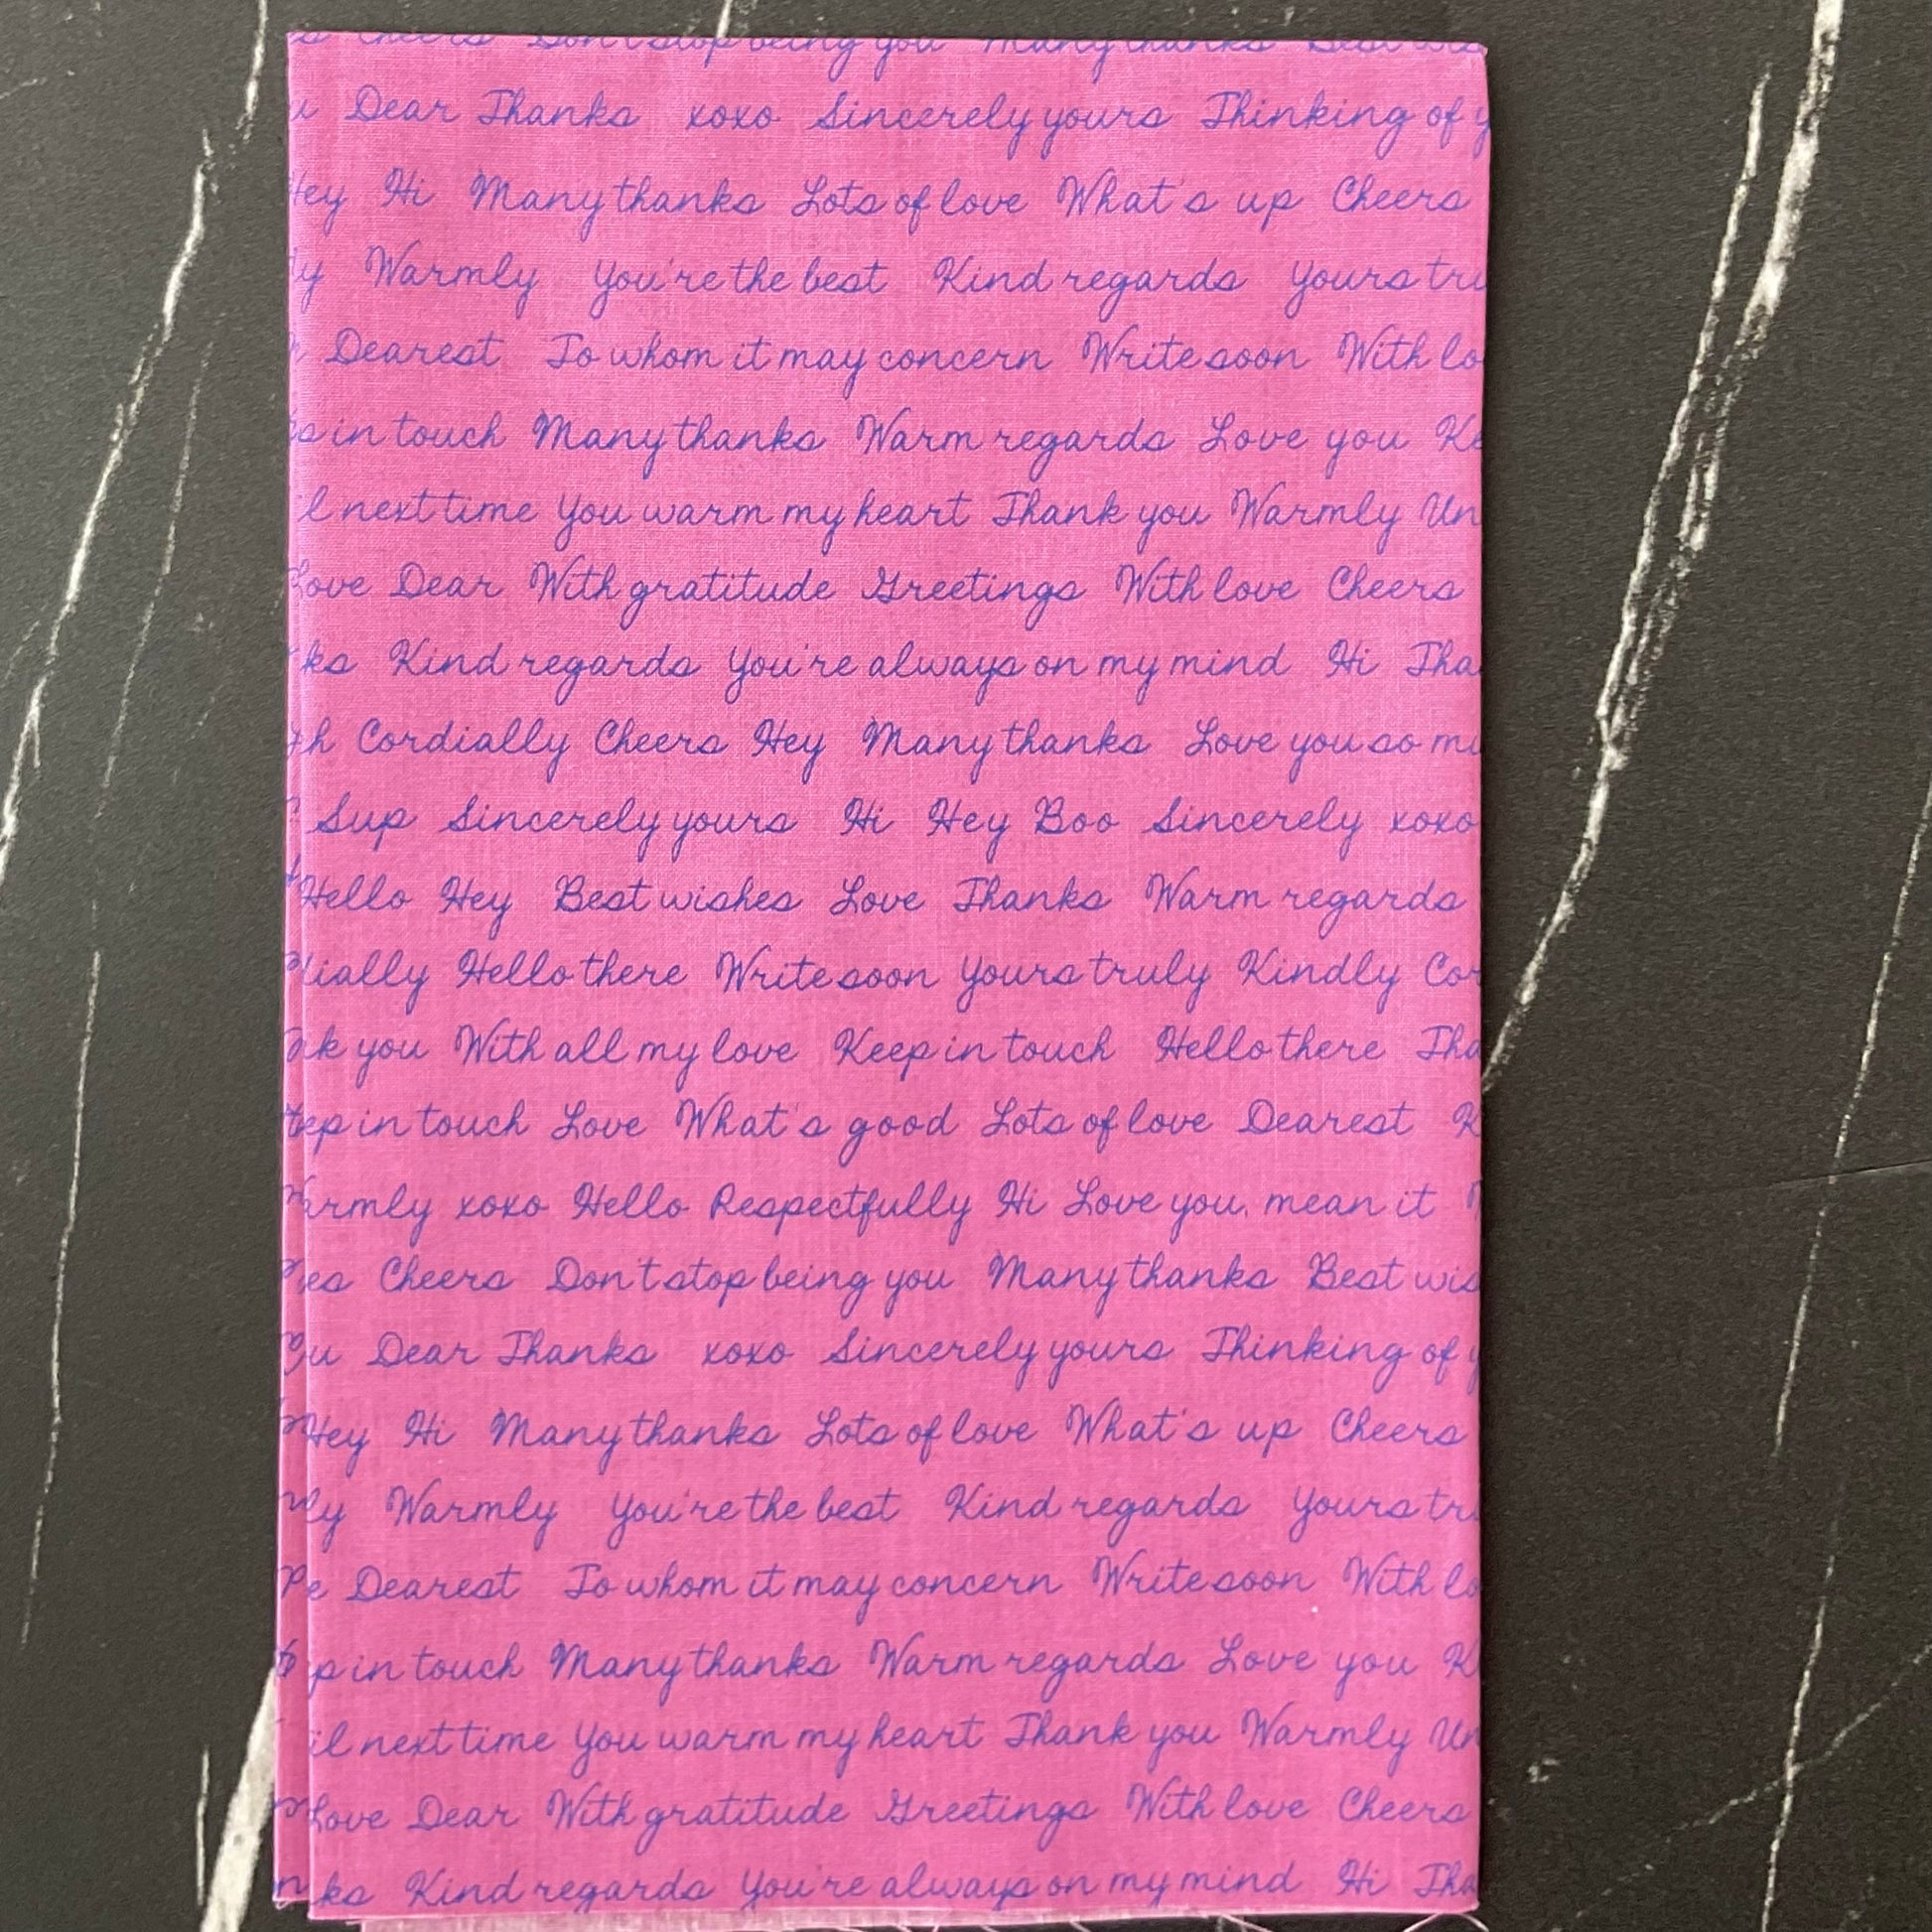 Cheers Don't stop being you Many thanks Best wis
u Dear Thanks xoxo Sincerely yours Thinking of y
Hey Hi Many thanks Lots of love What's up Cheers
ly Warmly You're the best Kind regards Yours tru
Dearest To whom it may concern Write soon With lo
in touch Many thanks Warm regards Love you Ke
il next time You warm my heart Thank you Warmly Un
Love Dear With gratitude Greetings With love Cheers
ks Kind regards You're always on my mind Hi Tha
h Cordially Cheers Hey Many thanks Love you so mu
Sup Sincerely yours Hi Hey Boo Sincerely xoxo
Hello Hey Best wishes Love Thanks Warm regards
dially Hello there Write soon Yours truly Kindly Cor
nk you With all my love Keep in touch Hello there Tha
ep in touch Love What's good Lots of love Dearest K
armly xoxo Hello Respectfully Hi Love you, mean it
es Cheers Don't stop being you Many thanks Best wis
u Dear Thanks xoxo Sincerely yours Thinking of y
Hey Hi Many thanks Lots of love What's up Cheers
ly Warmly You're the best Kind regards Yours tr
e Dearest To whom it may concern Write soon With lo
p in touch Many thanks Warm regards Love you K
il next time You warm my heart Thank you Warmly Un
Love Dear With gratitude Greetings With love Cheers
ks Kind regards You're always on my mind Hi Tha